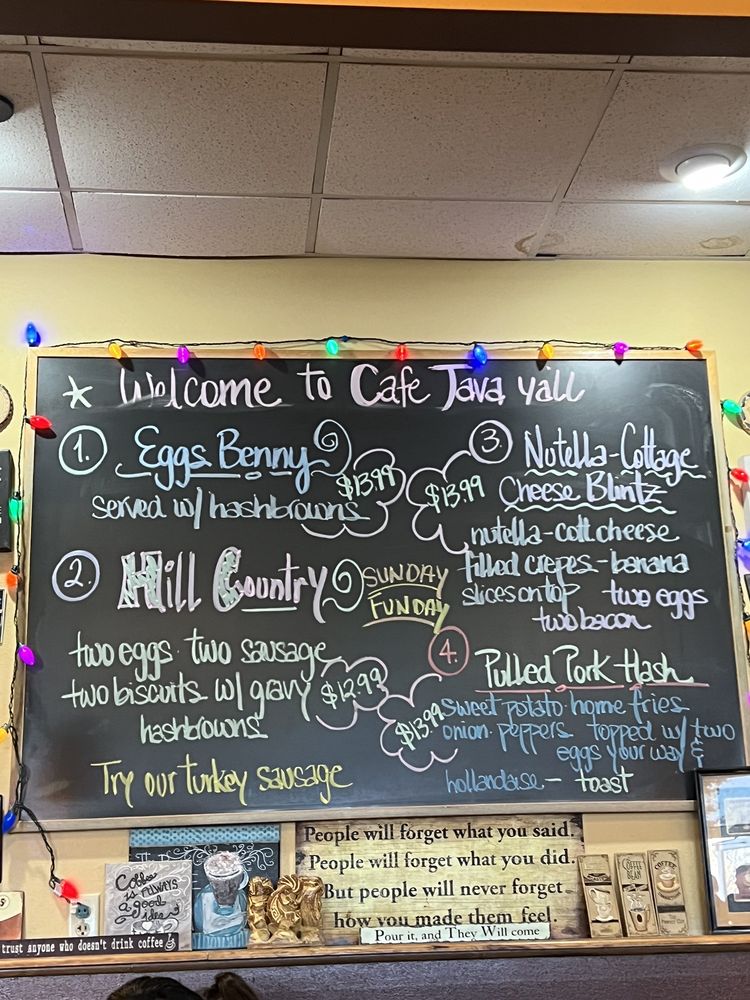 Welcome to Cafe Java yall
1. Eggs Benny
$13.99
served w/ hashbrowns
2. Hill Country
SUNDAY
FUNDAY
two eggs two sausage
two biscuits w/ gravy
$12.99
hashbrowns
Try our turkey sausage
3. Nutella-Cottage
Cheese Blintz
$13.99
nutella-cott cheese
filled crepes-banana
slices on top two eggs
two bacon
4. Pulled Pork Hash
$13.99
sweet potato home fries
onion peppers topped w/ two
eggs your way &
hollandaise - toast
Coffee
is ALWAYS
a good
idea
People will forget what you said.
People will forget what you did.
But people will never forget
how you made them feel.
Pour it, and They Will come
COFFEE
BEAN
COFFEE
trust anyone who doesn't drink coffee